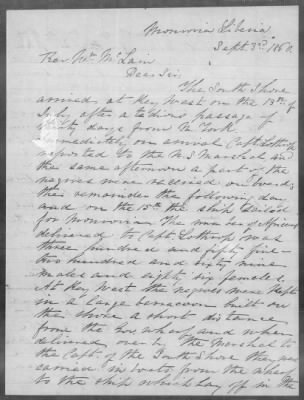 Monrovia Liberia
Sept. 3rd, 1860.
Rev Wm McLain
Dear Sir
The South Shore
arrived at Key West on the 13th of
July, after a tedious passage of
thirty days from N. York
Immediately on arrival Capt. Lothrop
reported to the U S Marshal and
the same afternoon a part of the
negroes were received on board,
the remainder the following day
and on the 15th the ship sailed
for Monrovia. The number of Africans
delivered to Capt. Lothrop was
three hundred and fifty five -
two hundred and sixty nine
males and eighty six females
At Key West the negroes were kept
in a large baracoon built on
the shore a short distance
from the wharf and when
delivered over by the Marshal to
the Capt. of the South Shore they were
carried in boats from the wharf
to the ship which lay off in the